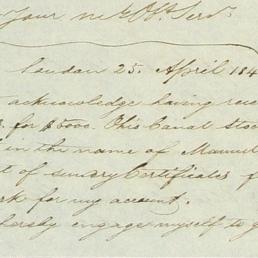 Your m. Ob. Serv.
London 25. April 184
acknowledge having rece
for $5000. Ohio Canal Stock
in the name of Manuel
t of sundry Certificates f
rk for my account.
hereby engage myself to g